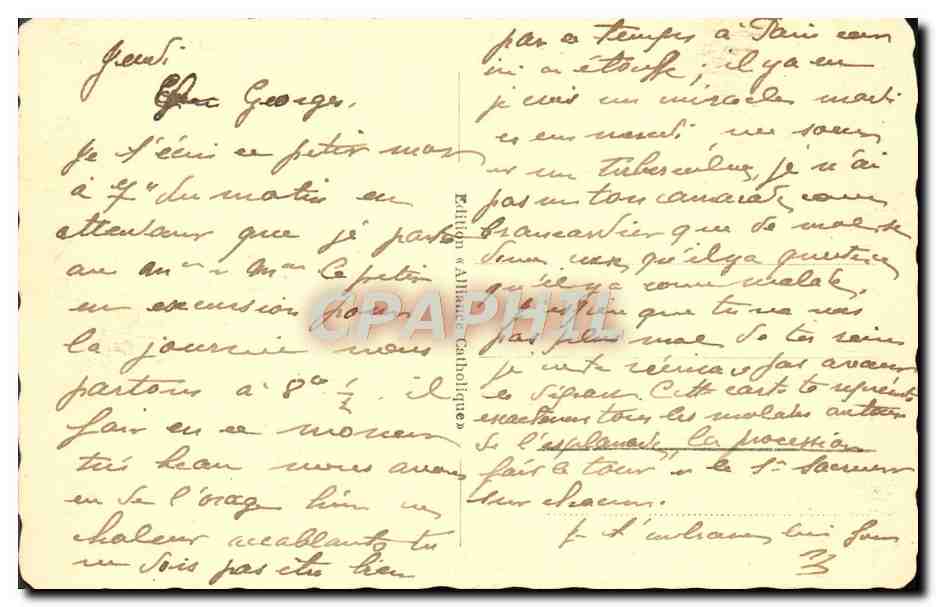 Jeudi
Georges.
Je t'écris ce petit mot
à 7h du matin en
attendant que je parte
au Mr et Mme Lepetit
en excursion pour
la journée nous
partons à 8h 1/2 il
fait en ce moment
très beau nous avons
eu de l'orage hier
chaleur accablante tu
ne dois pas être bien
par ce temps à Paris
on étouffe ; il y a eu
je crois un miracle mardi
une sourde
et un tuberculeux, je n'ai
pas vu ton camarade comme
brancardier que de monde
qu'il y a
qu'il y a comme malade.
J'espère que tu ne vas
pas plus mal de tes reins
je ne te verrai pas avant
Cette carte te représente
exactement tous les malades autour
de l'esplanade, la procession
fait le tour et le St Sacrement
sur chacun.
je t'embrasse bien fort
Edition « Alliance Catholique »
CPAPHIL